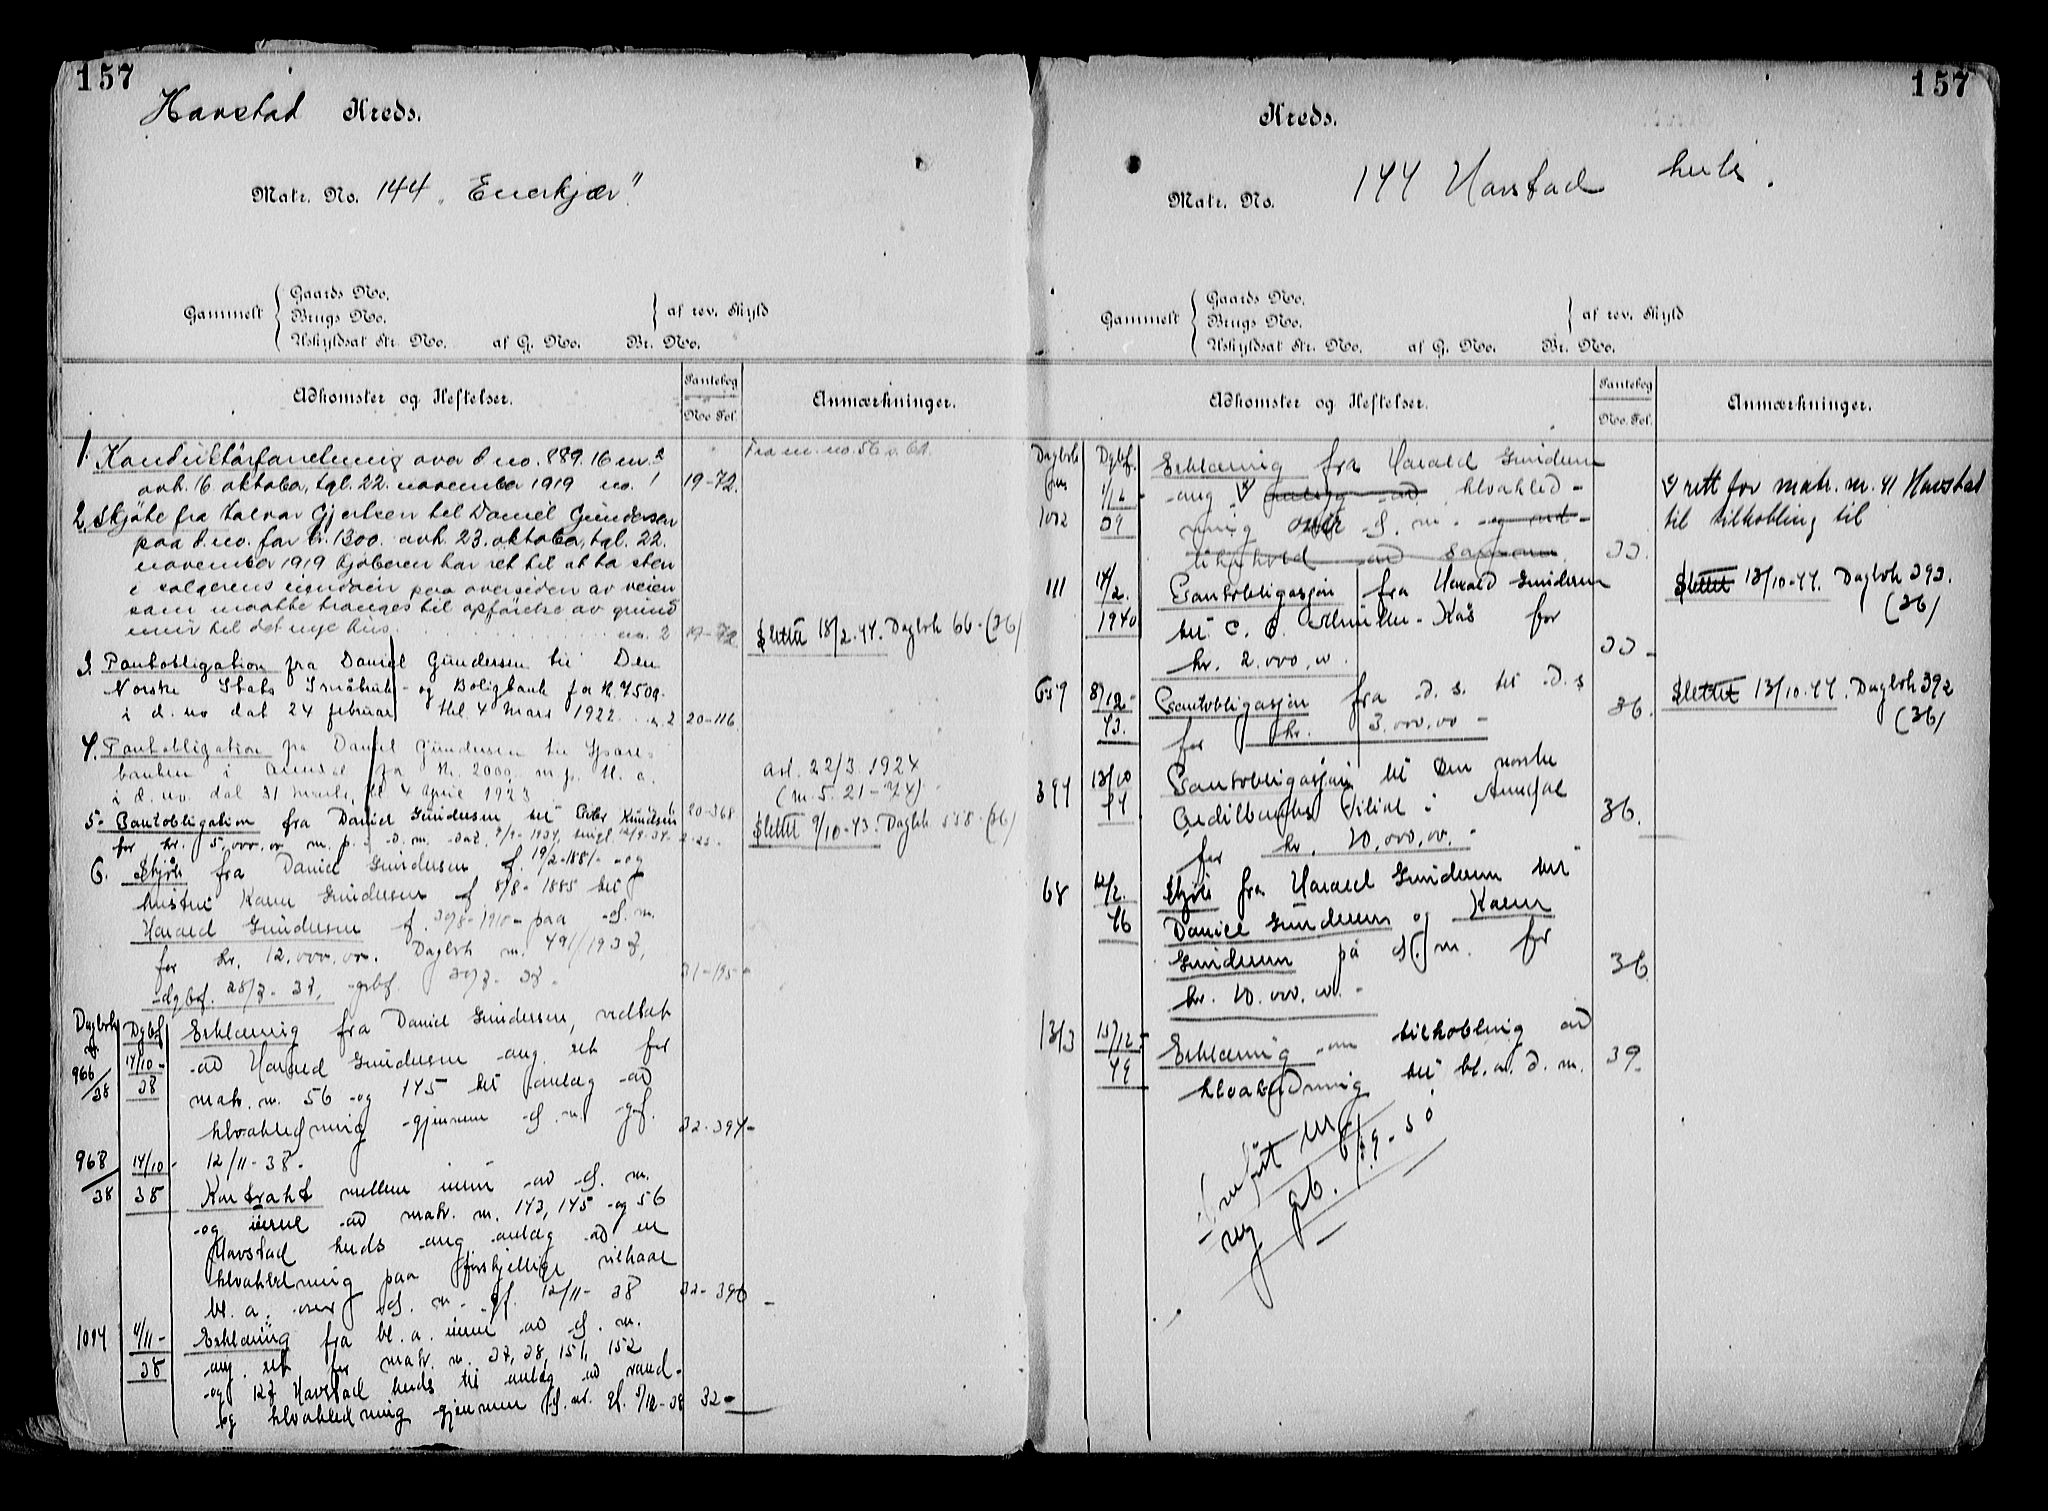 157
Havstad Kreds.
Matr. No. 144 „Enerkjær"
Gammelt
Gaards No.
Brugs No.
Uskyldsat Str. No. af G. No. Br. No.
af rev. Skyld
Adkomster og Heftelser.
Pantebog
No. Fol.
Anmærkninger.
1. Konduktörforretning over d. no. 889. 16 m.2
avh. 16 oktober, tgl. 22. november 1919 no. 1 19-72.
Fra m. no. 56 v. 61
2. Skjöte fra Halvor Gjertsen til Daniel Gundersen
paa d. no. for kr. 1300. avh. 23. oktober, tgl. 22.
november 1919 Kjöberen har ret til at ta sten
i sælgerens eiendom paa oversiden av veien
som maatte trænges til opförelse av grund
mur til det nye hus. no. 2 19-72
Slettet 18/2.44. Dagbok 66-(36)
3. Pantobligation fra Daniel Gundersen til Den
Norske Stats Småbruk- og Boligbank for kr. 7500.
i d. no dat 24 februar tgl. 4 mars 1922. n. 2 20-116
4. Pantobligation fra Daniel Gundersen til Spare-
banken i Arendal for kr. 2000. m. p. kl. a.
i d. no. dat 31 marts, tgl 4 april 1923 20-368
avl. 22/3. 1924
(m. 5. 21-74)
5. Pantobligation fra Daniel Gundersen til Peter Knudsen
for kr. 5.000,00 m. p. i d. m. dat. 9/9-1934, tingl. 12/9-34.
Slettet 9/10-43. Dagbok 558-(36)
6. Skjöte fra Daniel Gundersen f. 19/2-1881- og
hustru Karen Gundersen f. 8/8-1885 til
Harald Gundersen f. 30/8-1910- paa d. m.
for kr. 12.000.00. Dagbok nr. 491/1937,
dgbf. 28/7-37, grbf. 30/7-37. 31-195-
Dagbok nr. Dgbf
966/38 14/10-38 Erklæring fra Daniel Gundersen, vedtat
av Harald Gundersen ang. ret for
matr. nr. 56 og 145 til anlæg av
kloakledning gjennem d. m. grf.
12/11-38. 32-394-
968/38 14/10-38 Kontrakt mellem eieren av d. m.
og eierne av matr. nr. 143, 145 og 56
Havstad kreds ang. anlæg av en
kloakledning paa forskjellige vilkaar
bl. a. over d. m. gf. 12/11-38 32-396-
1094 4/11-38 Erklæring fra bl. a. eieren av d. m.
ang. ret for matr. nr. 37, 38, 151, 152
og 127 Havstad kreds til anlæg av vand-
og kloakledning gjennem d. m. gf. 3/12-38 32-
157
Kreds.
Matr. No. 144 Havstad kreds.
Gammelt
Gaards No.
Brugs No.
Uskyldsat Str. No. af G. No. Br. No.
af rev. Skyld
Adkomster og Heftelser.
Pantebog
No. Fol.
Anmærkninger.
Dagbok Dgbf.
1002 1/12-39 Erklæring fra Harald Gundersen
ang. kloakled-
ning over d. m. og ved-
likehold av samme 33.
rett for matr. nr. 41 Havstad
til tilkobling til
111 14/2. 1940 Pantobligasjon fra Harald Gundersen
til C. Müller-Kås for
kr. 2.000.00. 33-
Slettet 13/10-44. Dagbok 393.
(36)
659 8/12-43. Pantobligasjon fra d. s. til d. s
for kr. 3.000,00- 36.
Slettet 13/10-44. Dagbok 392
(36)
394 13/10 44 Pantobligasjon til Den norske
Creditbanks Filial i Arendal
for kr. 10.000,00.- 36.
68 12/2. 46 Skjöte fra Harald Gundersen til
Daniel Gundersen og Karen
Gundersen på d. m. for
kr. 10.000.00.- 36
1313 15/12-49 Erklæring om tilkobling av
kloakledning til bl. a. d. m. 39.
Innført in
ny gb. 1/9-50